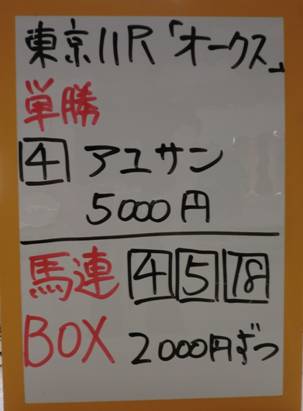 東京11R「オークス」
単勝
4 アユサン
5000円
馬連 4 5 18
BOX 2000円ずつ